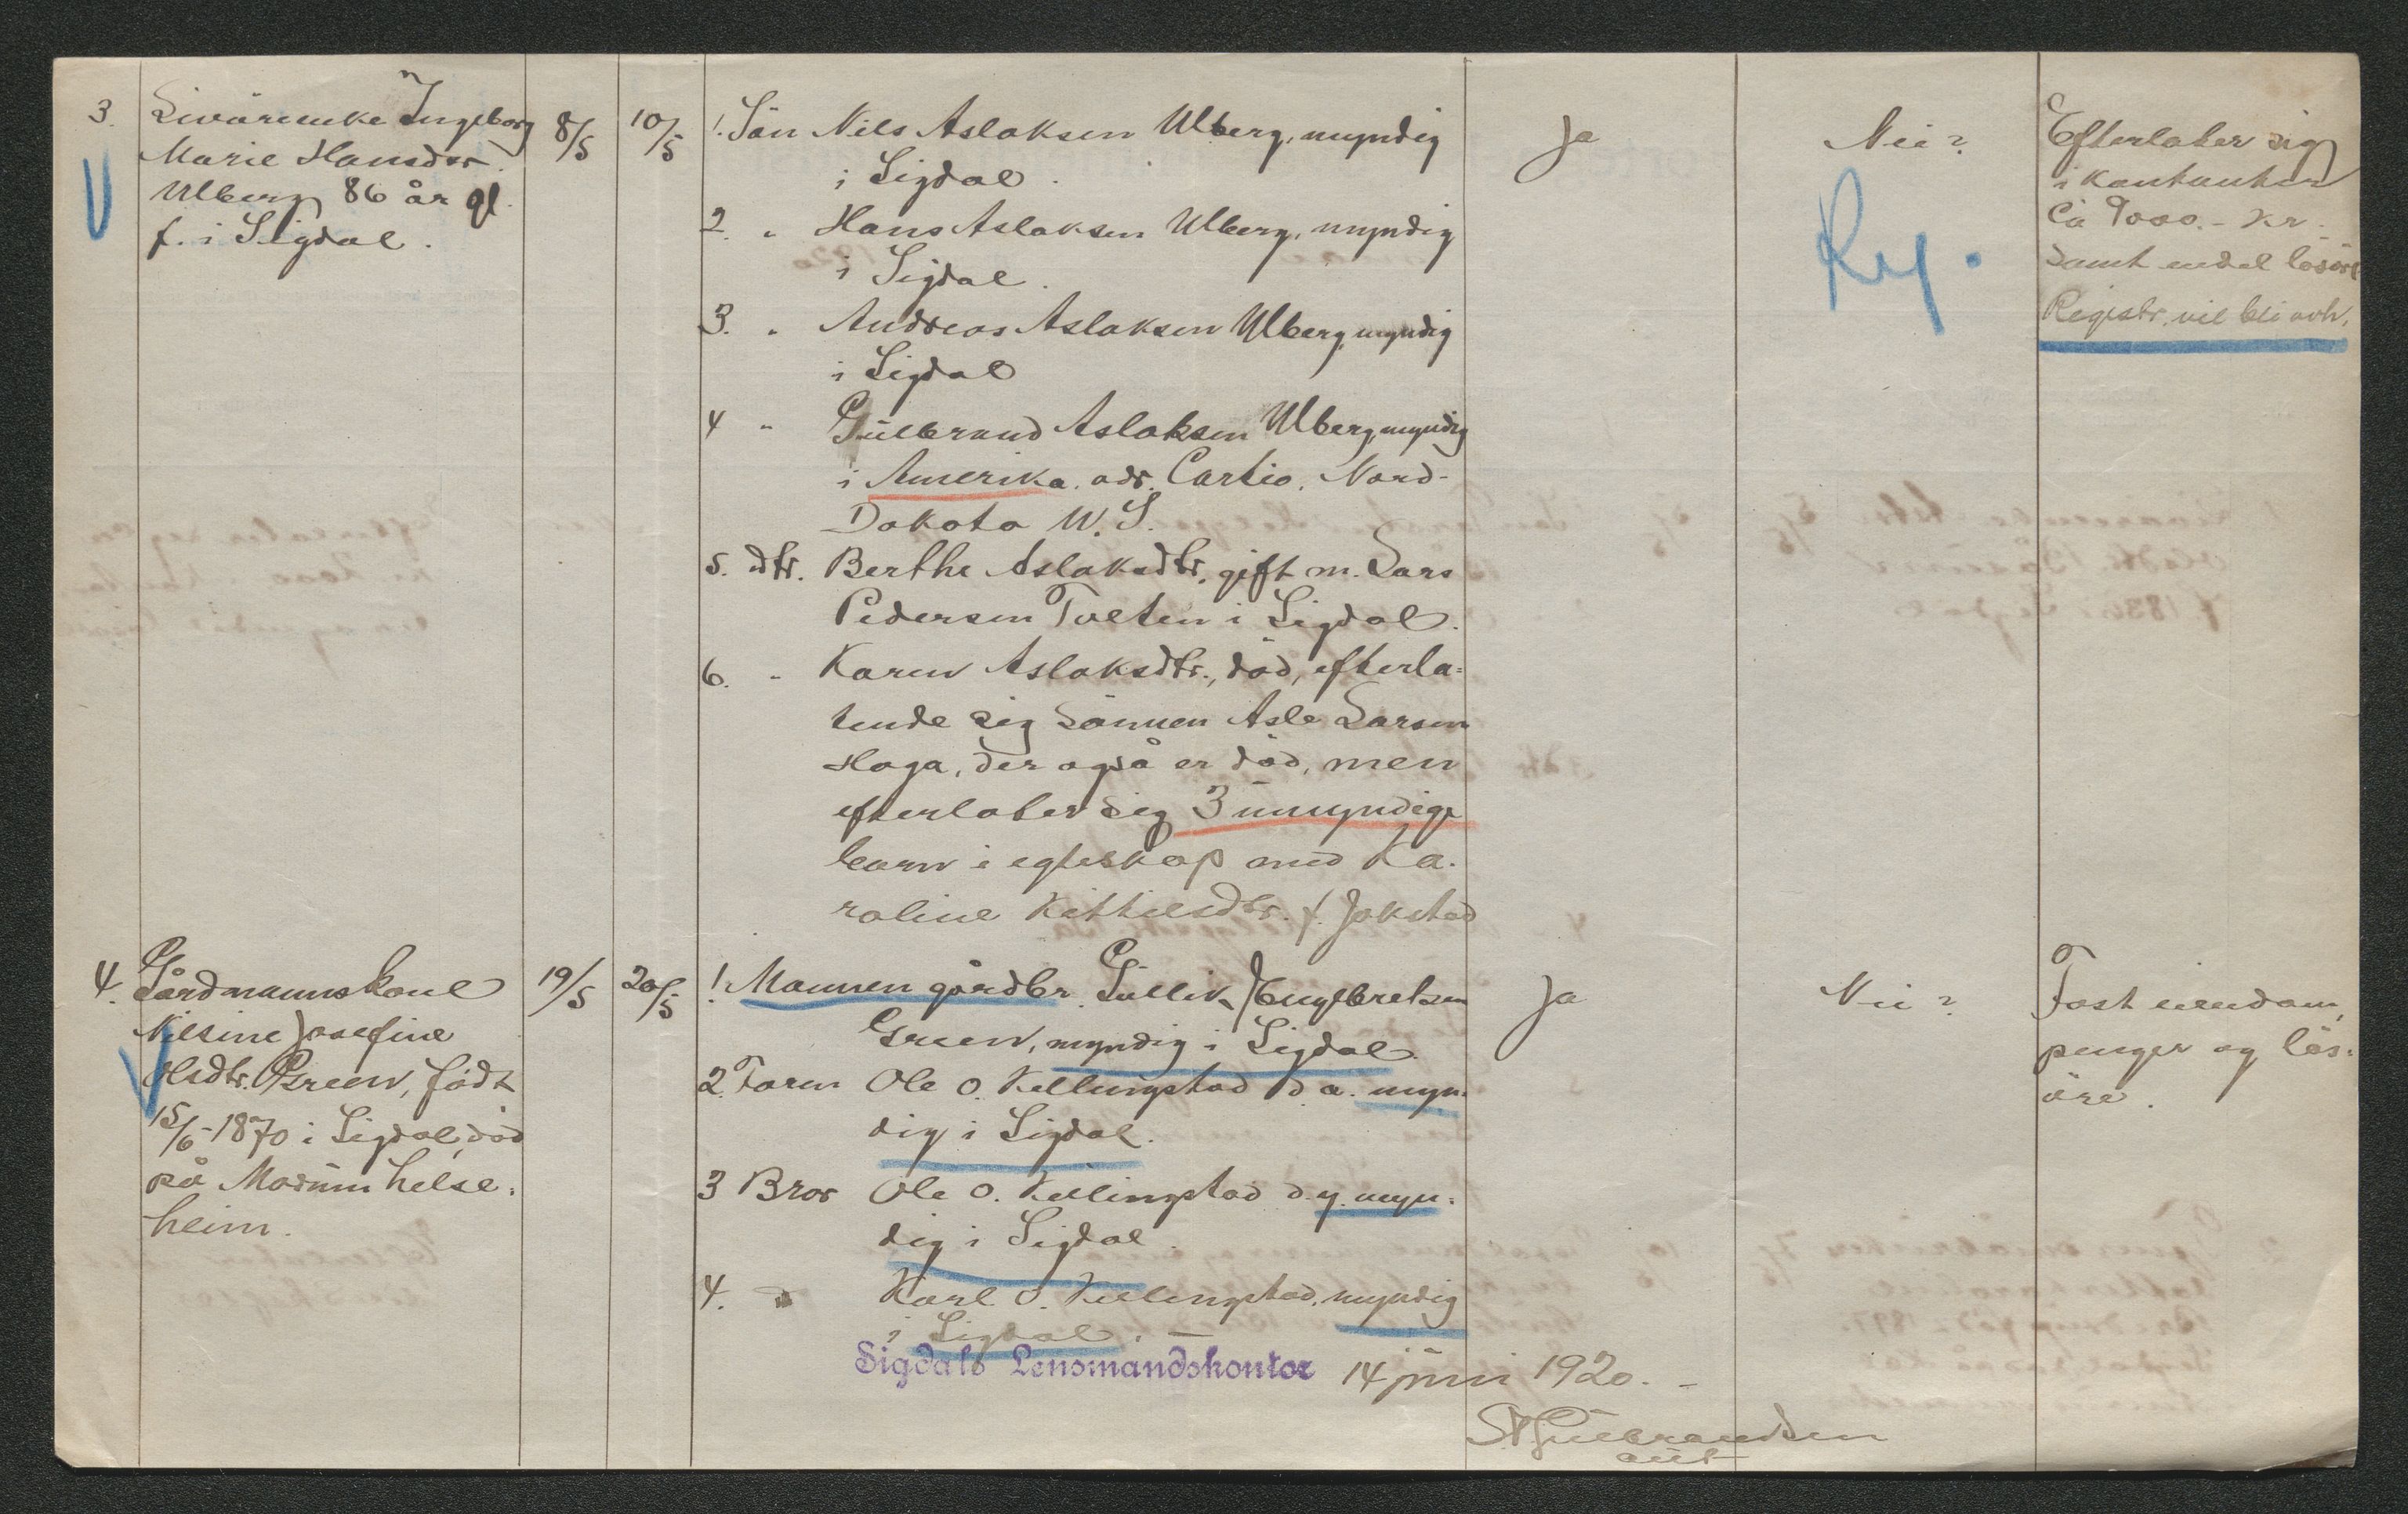 3.
Livörenke Ingeborg
Marie Hansdtr.
Ulberg 86 år gl.
f. i Sigdal.
8/5
10/5
1. Sön Nils Aslaksen Ulberg, myndig
i Sigdal.
2. " Hans Aslaksen Ulberg, myndig
i Sigdal.
3. " Andreas Aslaksen Ulberg, myndig
i Sigdal
4 " Gulbrand Aslaksen Ulberg, myndig
i Amerika. adr. Cartio, Nord-
Dakota W. S.
5. dtr. Berthe Aslaksdtr. gift m. Lars
Pedersen Tveten i Sigdal.
6. " Karen Aslaksdtr., död, efterla-
tende sig sönnen Asle Larsen
Haga, der også er död, men
efterlater sig 3 umyndige
barn i egteskap med Ka-
roline Kittilsdtr. f. Jokstad
Ja
Nei?
Reg.
Efterlater sig
i kontanter
Ca 9000.- kr.
samt endel lösöre
Registr. vil bli avh.
4.
Gårdmannskone
Nilsine Josefine
Olsdtr. Green, född
15/6-1870 i Sigdal, död
på Modum helse-
heim.
19/5
20/5
1. Mannen gårdbr. Gullik Engebretsen
Green, myndig i Sigdal
2. Faren Ole O. Kellingstad d. æ. myn-
dig i Sigdal.
3 Bror Ole O. Kellingstad d. y. myn-
dig i Sigdal.
4. " Karl O. Kellingstad, myndig
i Sigdal. —
Ja
Nei?
Fast eiendom,
penger og lös-
öre.
Sigdals Lensmandskontor 14 juni 1920. -
Gulbrandsen
aut